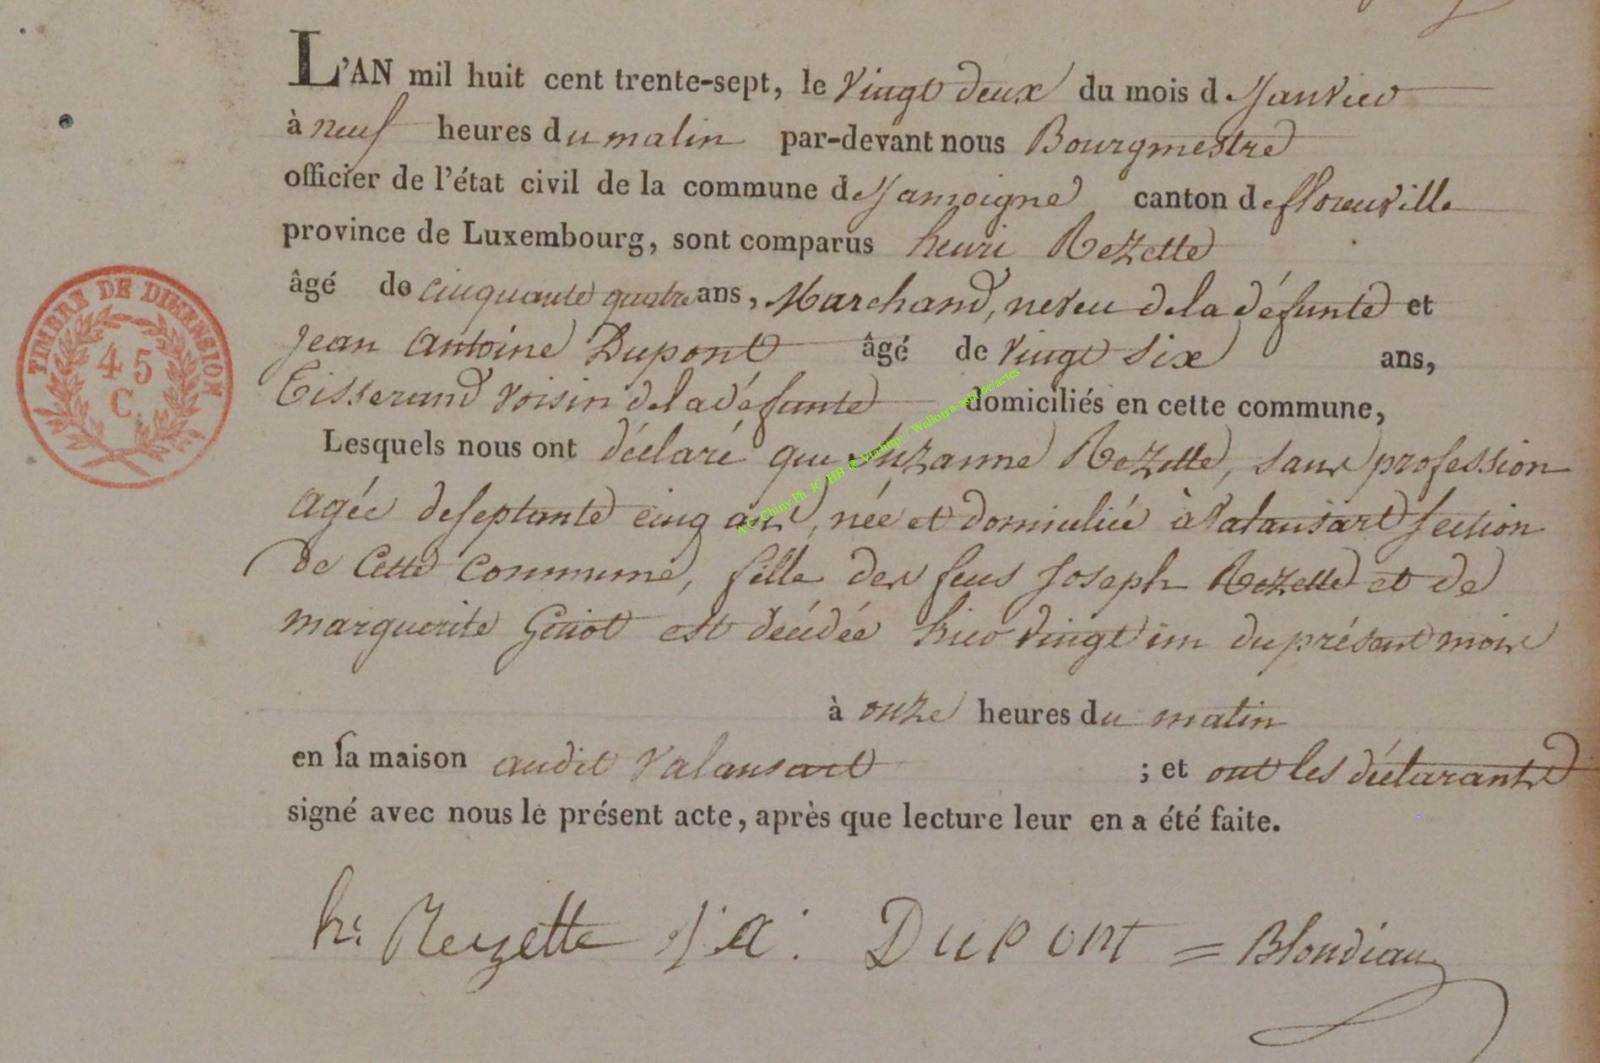 L'AN mil huit cent trente-sept, le vingt deux du mois d Janvier
à neuf heures du matin par-devant nous Bourgmestre
officier de l'état civil de la commune de Jamoigne canton de florenville
province de Luxembourg, sont comparus henri Rezette
âgé de cinquante quatre ans, Marchand, neveu de la défunte et
Jean Antoine Dupont âgé de vingt six ans,
Tisserand voisin de la défunte domiciliés en cette commune,
Lesquels nous ont déclaré que Suzanne Rezette, sans profession
agée de septante cinq ans, née et domiciliée à Valansart section
de Cette Commune, fille des feus Joseph Rezette et de
marguerite Guiot est décédée hier vingt un du présent mois
à onze heures du matin
en sa maison audit Valansart ; et ont les déclarants
signé avec nous le présent acte, après que lecture leur en a été faite.
h: Rezette J: A: DUPONT = Blondiau
TIMBRE DE DIMENSION
45
C.